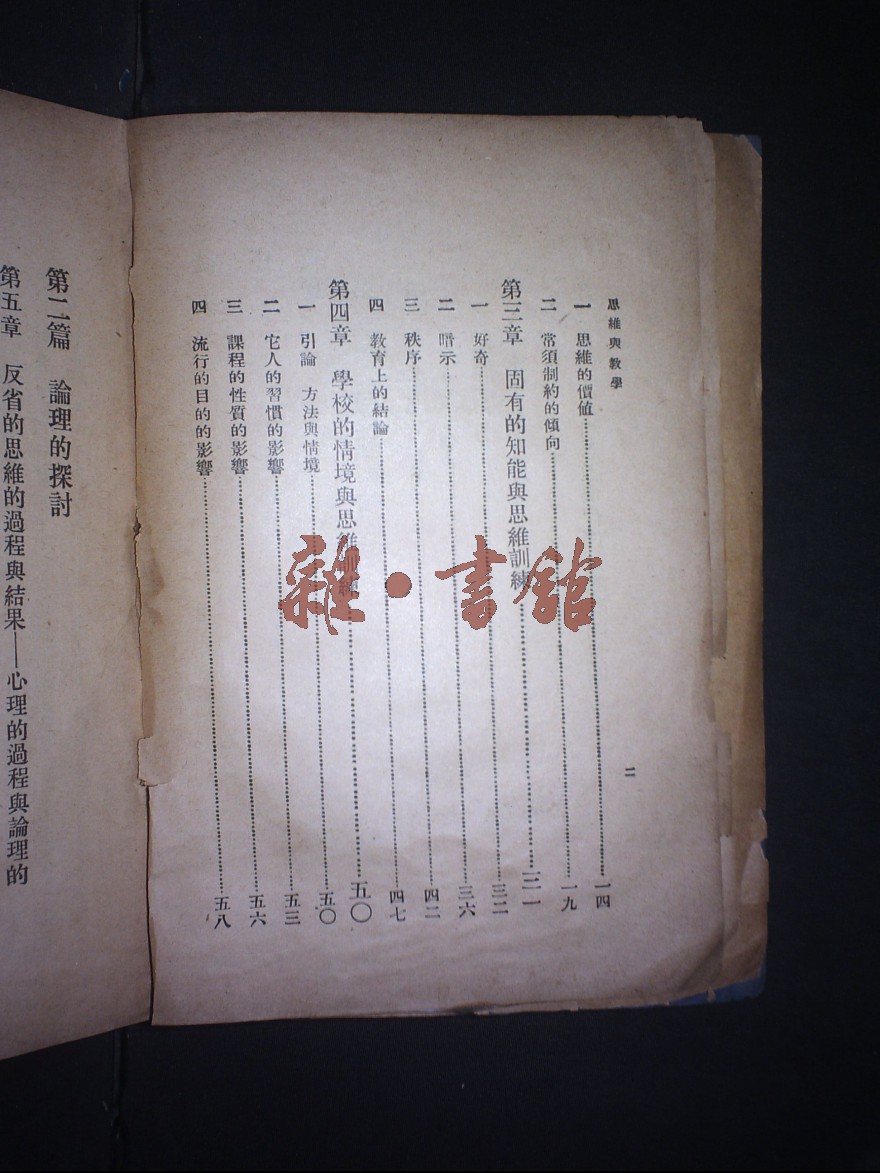 思維與教學
二
一 思維的價值……一四
二 常須制約的傾向……一九
第三章 固有的知能與思維訓練……三一
一 好奇……三二
二 暗示……三六
三 秩序……四二
四 教育上的結論……四七
第四章 學校的情境與思維訓練……五〇
一 引論 方法與情境……五〇
二 它人的習慣的影響……五三
三 課程的性質的影響……五六
四 流行的目的的影響……五八
第二篇 論理的探討
第五章 反省的思維的過程與結果——心理的過程與論理的
雜·書館